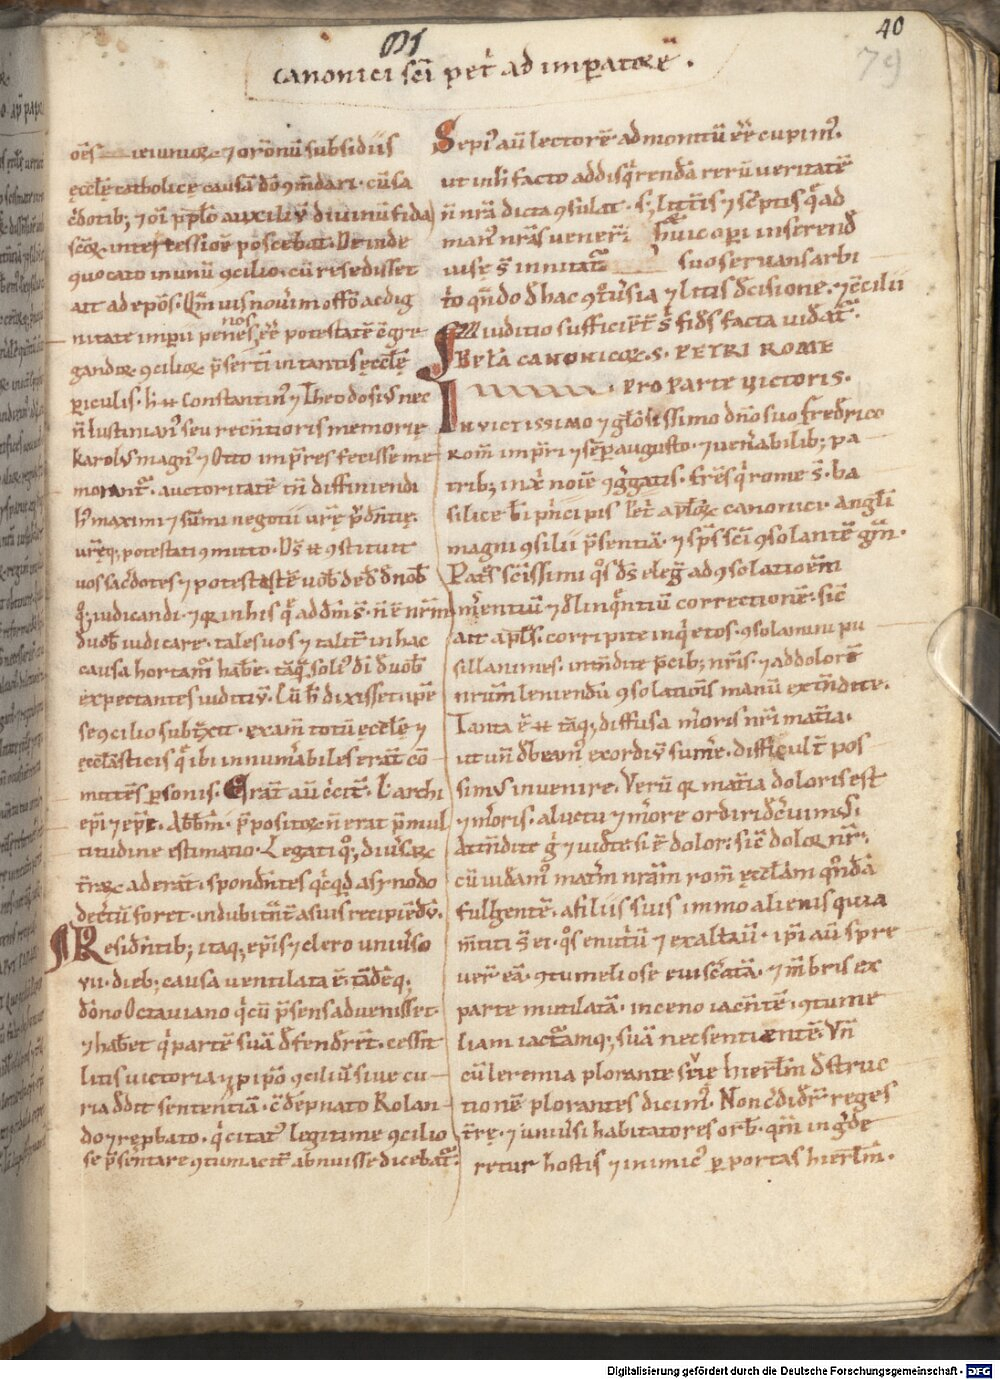 40
79
canonici sc̄i pet̄ ad imp̄atorē.
oēs ieiunioꝝ ⁊ orōnū subsidiis
ęcclę catholice causā dō ꝯm̄dari. cū sa
c̄dotib; ⁊ oī pp̄lo auxiliū diuinū fida
sc̄oꝝ intercessiōe poscebat. Deinde
quocato in unū ꝯcilio. cū resedisset
ait ad ep̄os. Qm̄ uis nouim̄ offō ac dig
nitate imp̄ii penes nos ēē potestatē ꝯgre
gandoꝝ ꝯcilioꝝ p̄sertī in tantis ęcclę
p̄iculis. h̄ ēt Constantin᷒ ⁊ Theodosi᷒ nec
n̄ Iustinian᷒ seu recentioris memorię
karol᷒ magn᷒ ⁊ Otto imp̄res fecisse me
morant᷑. auctoritatē tn̄ diffiniendi
h᷒ maximi ⁊ sūmi negotii urę p̄dn̄tię.
uręq; potestati ꝯmitto. Ds̄ ēt ꝯstituit
uos sac̄dotes ⁊ potestatē uob̄ ded̄ d̄ nob̄
q; iudicandi. ⁊ qꝛ in his q̄ ad dm̄ s̄. n̄ ē nrm̄
d̄ uob̄ iudicare. tales uos ⁊ talit̄ in hac
causa hortam᷑ hab̄e. tāq; soli᷒ di d̄ uob̄
expectantes iuditiū. Cū h̄ dixisset. ip̄e
se ꝯcilio subt̄xit. exam̄ totū ęcclę ⁊
ęcclasticis q̄ ibi innum̄abiles erāt cō
mittēs p̄sonis. Erāt aū c̄cit᷑. L. archi
ep̄i ⁊ ep̄i. Abb̄m. p̄positoꝝ n̄ erat p̄ mul
titudine estimatio. Legati q; diu̓saꝝ
t̄raꝝ aderāt. spondn̄tes q̄cq̄d a synodo
decr̄tū foret. indubitāt̄ a suis recipiēdū.
Residn̄tib; itaq; ep̄is ⁊ clero uniu̓so
vii. dieb; causa uentilata ē. tādēq;
dōno Octauiano q̄ cū p̄sens aduenisset.
⁊ hab̄et q̄ partē suā d̄fendr̄et. cessit
litis uictoria ⁊ p̄ ip̄o ꝯciliū siue cu
ria ddit sententiā. ꝯdēpnato Rolan
do ⁊ rep̄bato. q̄ citat᷒ legitime ꝯcilio
se p̄sentare ꝯtumacit̄ abnuisse dicebat᷑.
Sepi᷒ aū lectorē admonitū eē cupim᷒.
ut in h̄ facto ad disq̄rendā rerū ueritatē
n̄ nrā dicta ꝯsulat. s; litt̄is ⁊ sc̄ptis q̄ ad
man᷒ nrās uener̄. huic op̄i inserend̄
uise s̄ inuitat᷑ suo seruans arbi
t̄o qn̄do d̄ hac ꝯt̄uersia ⁊ litis d̄cisione. ⁊ ꝯcilii
iuditio sufficiēt̄ s̄ fid̄s facta uideat᷑.
EPLA CANONICOꝜ. S. PETRI ROME
PRO PARTE VICTORIS.
Inuictissimo ⁊ glōsissimo dn̄o suo Frederico
Rom̄ imp̄ri ⁊ sēp augusto. ⁊ uen̄abilib; pa
trib; in xp̄i noīe ꝯg̓gatis. frēs q̄ rome s̄. ba
silice b̄i p̄ncipis Pet̄ ap̄loꝝ canonici. Angl̄i
magni ꝯsilii p̄sentiā. ⁊ sp̄s sc̄i ꝯsolantē gr̄m.
Patr̄s sc̄issimi q̄s ds̄ eleg̓ ad ꝯsolatōem
m̄entiū ⁊ dlinq̄ntiū correctionē. sic̄
ait ap̄ls. corripite inq̓etos. ꝯsolamini pu
sillanimes. intn̄dite p̄cib; nr̄is. ⁊ ad dolorē
nrūm leniendū ꝯsolationis manū extn̄dite.
Tanta ē ēt tāq; diffusa m̄oris nr̄i mat̄ia.
ut un̄ d̄beam᷒ exordiū sum̄e. difficult̄ pos
sim᷒ inuenire. Verū qꝛ mat̄ia doloris est
⁊ m̄oris. a luctu ⁊ m̄ore ordiri dc̄uim᷒. S;
Attn̄dite g̓ ⁊ uidete si ē dolor. sic̄ dolor nr̄.
cū uideam᷒ mat̄m nrām rom̄ ęcclam qn̄dā
fulgentē. a filiis suis immo alienis quia
m̄titi s̄ ei. q̓s enutriū ⁊ exaltauit. ip̄i aū spre
uer̄ eā. ꝯtumeliose euisc̄atā. ⁊ m̄bris ex
parte mutilatā. in ceno iacn̄tē. ꝯtume
liam iactāmq; suā nec sentientē. Vn̄
cū Ieremia plorante sup̄ hierl̄m d̄struc
tionē plorantes dicim᷒. Non c̄dider̄ reges
t̄rę. ⁊ uniu̓si habitatores orb̄. qm̄ ing̓de
retur hostis ⁊ inimic᷒ p̄ portas hierl̄m.
Digitalisierung gefördert durch die Deutsche Forschungsgemeinschaft - DFG